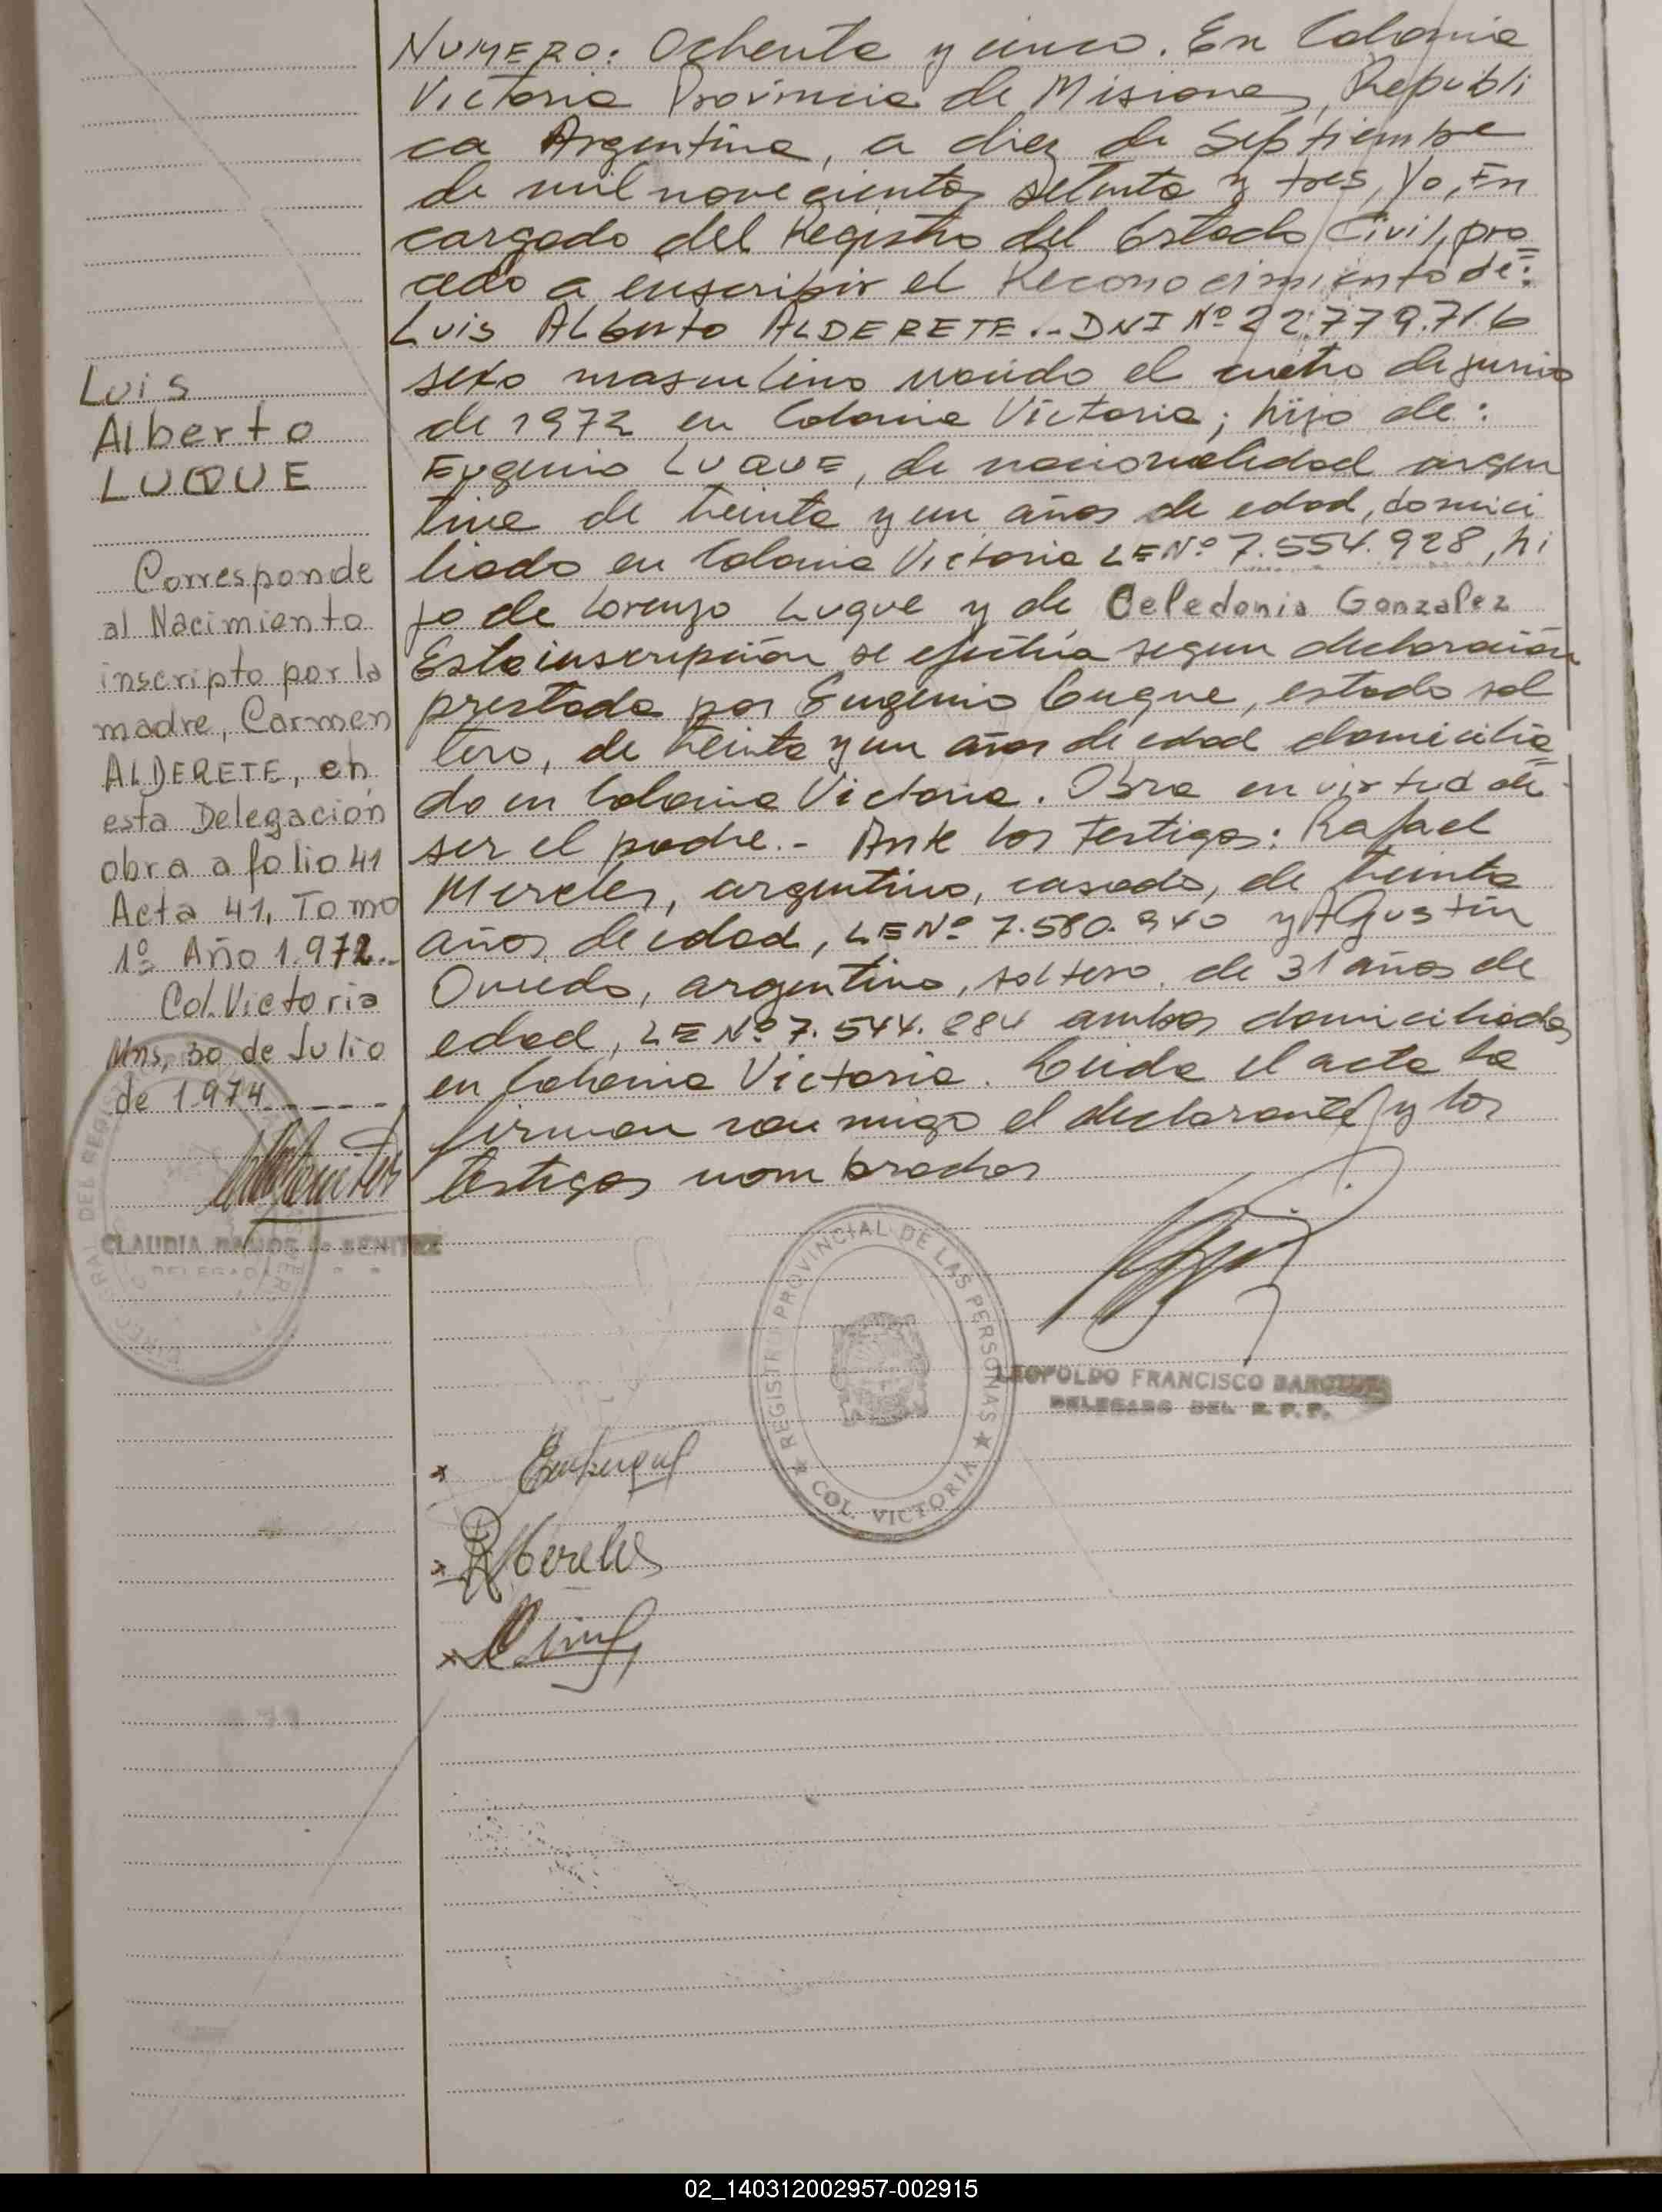 NUMERO: Ochenta y cinco. En Colonia
Victoria Provincia de Misiones, Republi
ca Argentina, a diez de Septiembre
de mil novecientos setenta y tres, Yo, En
cargado del Registro del Estado Civil, pro
cedo a enscribir el Reconocimiento de:
Luis Alberto ALDERETE.- DNI Nº 22.779.716
sexo masculino nacido el cuatro de junio
de 1972 en Colonia Victoria; hijo de:
Eugenio LUQUE, de nacionalidad argen
tina de treinta y un años de edad, domici
liado en Colonia Victoria LE Nº 7.554.928, hi
jo de Lorenzo Luque y de Celedonia Gonzalez
Esta inscripción se efectúa segun declaración
prestada por Eugenio Luque, estado sol
tero, de treinta y un años de edad domicilia
do en Colonia Victoria. Obra en virtud de
ser el padre.- Ante los Testigos: Rafael
Mereles, argentino, casado, de treinta
años de edad, LE Nº 7.580.940 y AGustín
Oviedo, argentino, soltero, de 31 años de
edad, LE Nº 7.544.284 ambos domiciliados
en Colonia Victoria. Leida el acta la
firman conmigo el declarante y los
testigos nombrados
Luis
Alberto
LUQUE
Corresponde
al Nacimiento
inscripto por la
madre, Carmen
ALDERETE, en
esta Delegación
obra a folio 41
Acta 41, Tomo
1º Año 1.972..
Col. Victoria
Mns, 30 de Julio
de 1974-----
CLAUDIA RAMOS de BENITEZ
DELEGADA
REGISTRO PROVINCIAL DE LAS PERSONAS
COL. VICTORIA
LEOPOLDO FRANCISCO
DELEGADO DEL R. P. P.
x
x R Mereles
x
02_140312002957-002915